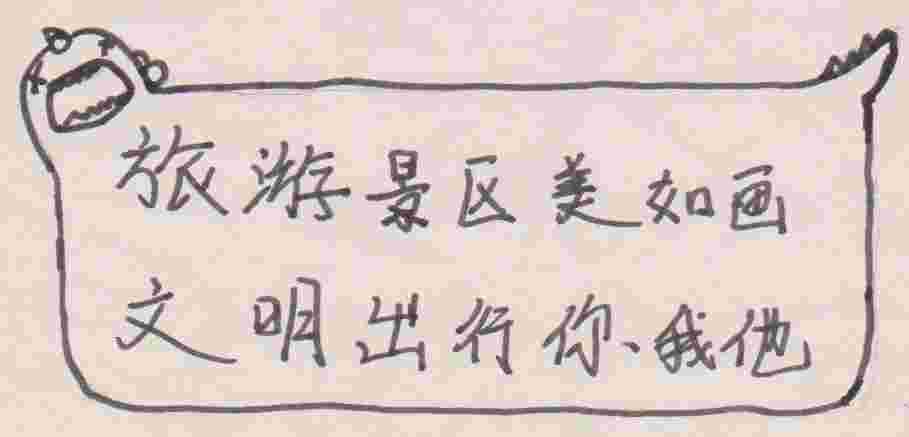 旅游景区美如画
文明出行你、我他